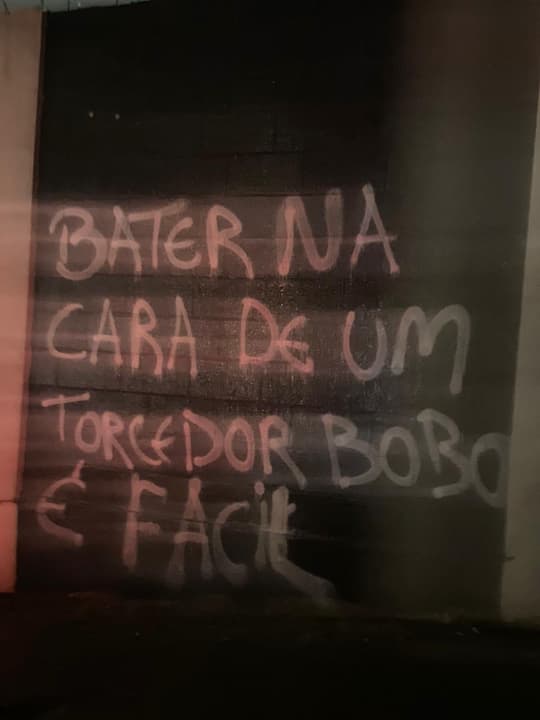 BATER NA
CARA DE UM
TORCEDOR BOBO
É FACIL